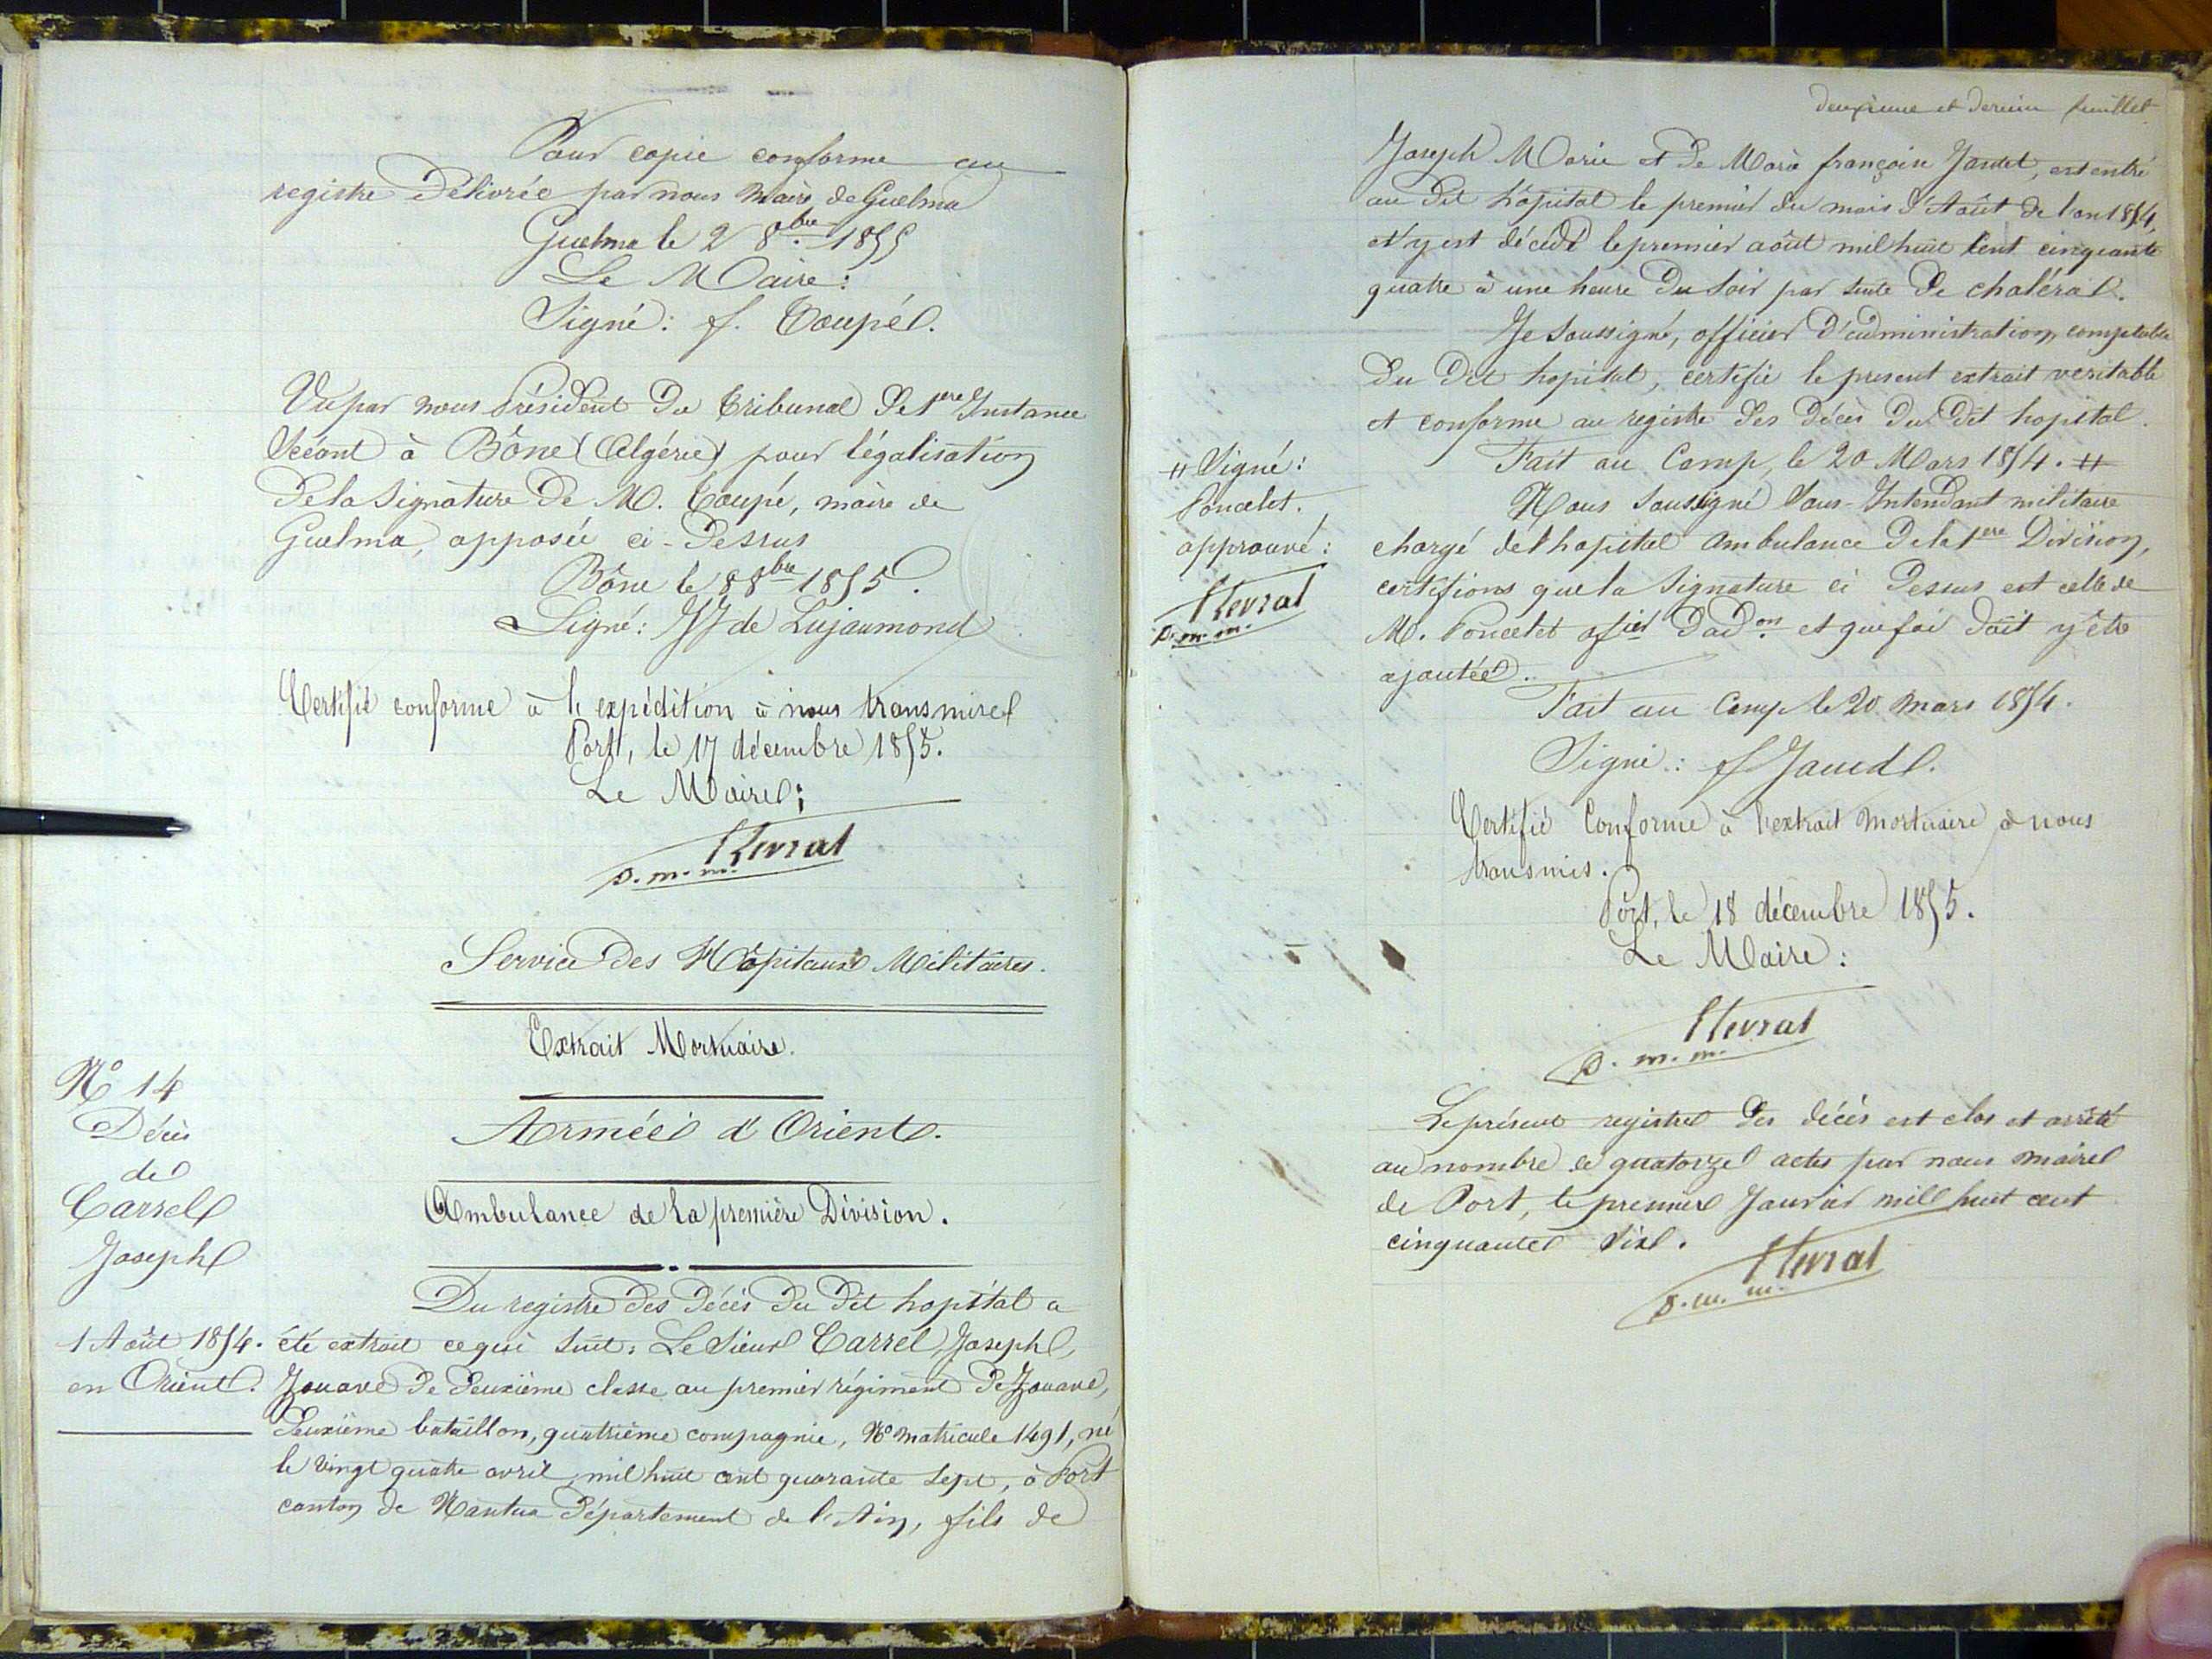 Pour copie conforme au
registre délivrée par nous maire de Guelma
Guelma le 2 8bre 1855
Le Maire:
Signé: f. Toupé.
Vu par nous Président du tribunal de 1ere Instance
Scéant à Bône (Algérie) pour légalisation
de la Signature de M. Toupé, maire de
Guelma, apposée ci-dessus
Bône le 8 8bre 1855.
Signé: JJ de Lujaumond
Certifié conforme à l'expédition à nous transmise
Port, le 17 décembre 1855.
Le Maire;
p. m. m.
Service des Hôpitaux Militaires.
Extrait Mortuaire.
Armée d'Orient.
Ambulance de la première Division.
No 14
Décès
de
Carrel
Joseph
1 Août 1854.
en Orient.
Du registre des décès du dit hopital a
été extrait ce qui suit: Le Sieur Carrel, Joseph,
Zouave de deuxième classe au premier régiment de Zouave,
deuxième bataillon, quatrième compagnie, No matricule 1491, né
le vingt quatre avril mil huit cent quarante sept, à Port
canton de Nantua département de l'Ain, fils de
deuxieme et dernier feuillet
Joseph Marie et de Marie françoise Jantet, est entré
au dit hôpital le premier du mois d'Août de l'an 1854,
et y est décédé le premier août mil huit cent cinquante
quatre à une heure du soir par suite de choléra.
Je soussigné, officier d'administration, comptable
du dit hopital, certifie le present extrait veritable
et conforme au registre des décès du dit hopital.
Fait au Camp, le 20 Mars 1854. #
# Signé:
Poncelet.
approuvé:
p. m. m.
Nous soussigné Sous-Intendant militaire
chargé de l'hopital ambulance de la 1ere Division,
certifions que la signature ci dessus est celle de
M. Poncelet ofier d'adon et que foi doit y être
ajoutée.
Fait au Camp le 20 mars 1854.
Signé: f
Certifié Conforme à l'extrait mortuaire à nous
transmis.
Port, le 18 décembre 1855.
Le Maire:
p. m. m.
Le présent registre des décès est clos et arrêté
au nombre de quatorze actes par nous maire
de Port, le premier Janvier mill huit cent
cinquante six.
p. m. m.